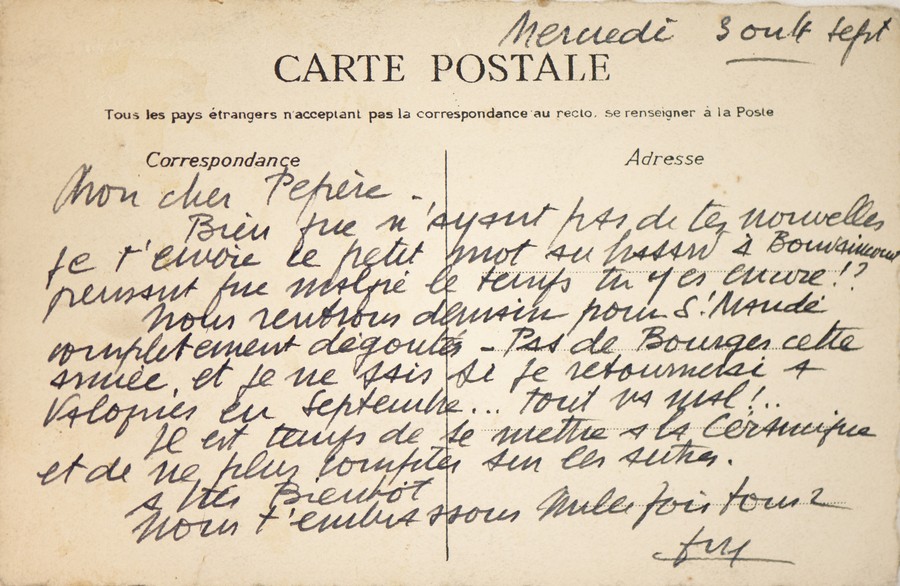 Mercredi 3 sept
CARTE POSTALE
Tous les pays étrangers n'acceptant pas la correspondance au recto. se renseigner à la Poste
Correspondance
Adresse
Mon cher Pepère -
Bien que n'ayant pas de tes nouvelles
je t'envoie ce petit mot au hasard à
pensant que malgré le temps tu y es encore!?
Nous rentrons demain pour St Mandé
complètement dégoutés - Pas de Bourges cette
année, et je ne sais si je retournerai à
Valognes en Septembre... tout va mal!..
Il est temps de se mettre à la Céramique
et de ne plus compter sur les autres.
A très Bientôt
Nous t'embrassons mille fois tous 2